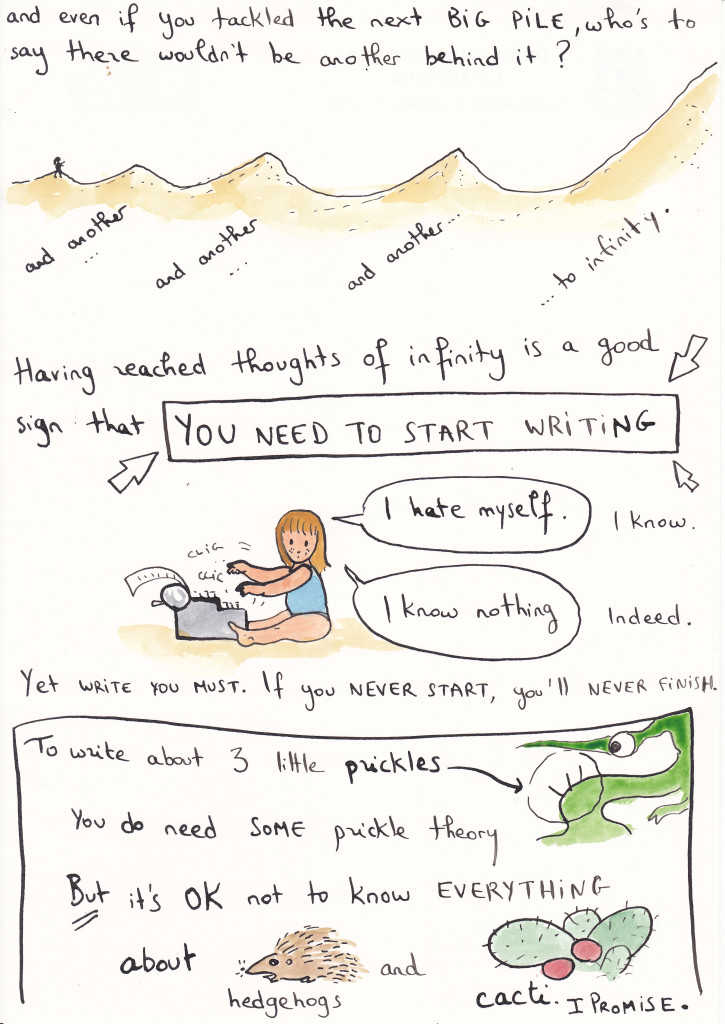 and even if you tackled the next BIG PILE, who's to
say there wouldn't be another behind it ?
and another
...
and another
...
and another...
... to infinity.
Having reached thoughts of infinity is a good
sign that YOU NEED TO START WRITING
I hate myself. I know.
CLIC
CLIC
I know nothing Indeed.
Yet WRITE YOU MUST. If you NEVER START, you'll NEVER FINISH.
To write about 3 little prickles
You do need SOME prickle theory
But it's OK not to know EVERYTHING
about and
hedgehogs cacti. I PROMISE.